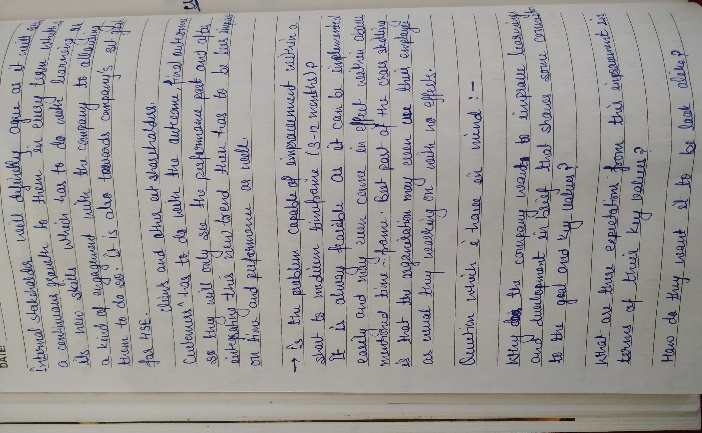 DATE:
Internal stakeholder will definitely agree as it will be
a continuous growth to them in every item with
its new skills which has to do with learning is
a kind of engagement with the company to allowing
them to do so. It is also towards company's
for HSE.
Client and other ext shareholders.
Customers has to do with the outcome, final outcome
so they will only see the performance part and after
integrating this new trend there has to be less
on time and performance as well.
→ Is the problem capable of improvement within a
short to medium timeframe (3-12 months)?
It is always feasible as it can be implemented
easily and may even come in effect within above
mentioned time-frame. But part of the
is that the organisation may even see their employee
as usual they working on with no effect.
Question which i have in mind :-
Why the company wants to implace learning
and development in brief that shares some
to the goal and key values?
What are these expectations from this improvement in
terms of their key values?
How do they want it to be look alike?